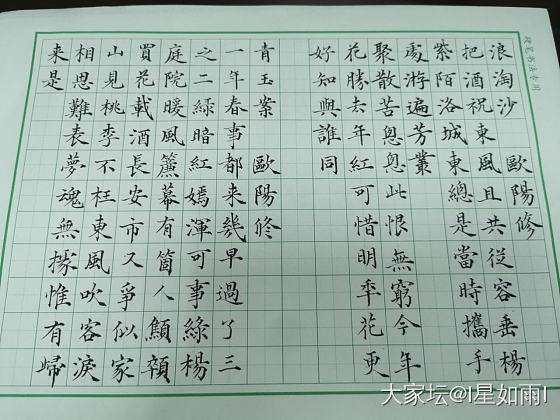 硬笔书法专用
浪淘沙 歐陽修
把酒祝東風且共從容垂楊
紫陌洛城東總是當時攜手
處游遍芳叢
聚散苦怱怱此恨無窮今年
花勝去年紅可惜明秊花更
好知與誰同
青玉案 歐陽修
一年春事都来幾早過了三
之二綠暗紅嫣渾可事綠楊
庭院暖風簾幕有箇人顦顇
買花載酒長安市又爭似家
山見桃李不枉東風吹客淚
相思難表夢魂無據惟有歸
来是
大家坛@l星如雨l